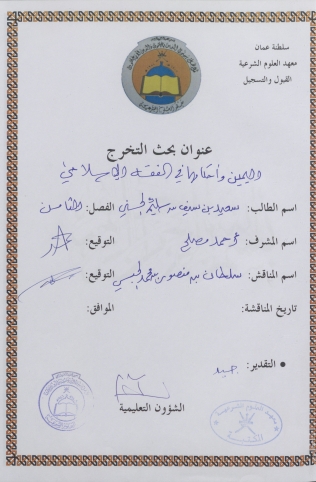 سلطنة عمان
معهد العلوم الشرعية
القبول والتسجيل
عنوان بحث التخرج
اليمين وأحكامها في الفقه الإسلامي
اسم الطالب: سعيد بن سيف بن سليم الحسني الفصل: الثامن
اسم المشرف: أحمد مصلح التوقيع:
اسم المناقش: سلطان بن منصور بن محمد الحبسي التوقيع:
تاريخ المناقشة: الموافق:
• التقدير: جيد
الشؤون التعليمية